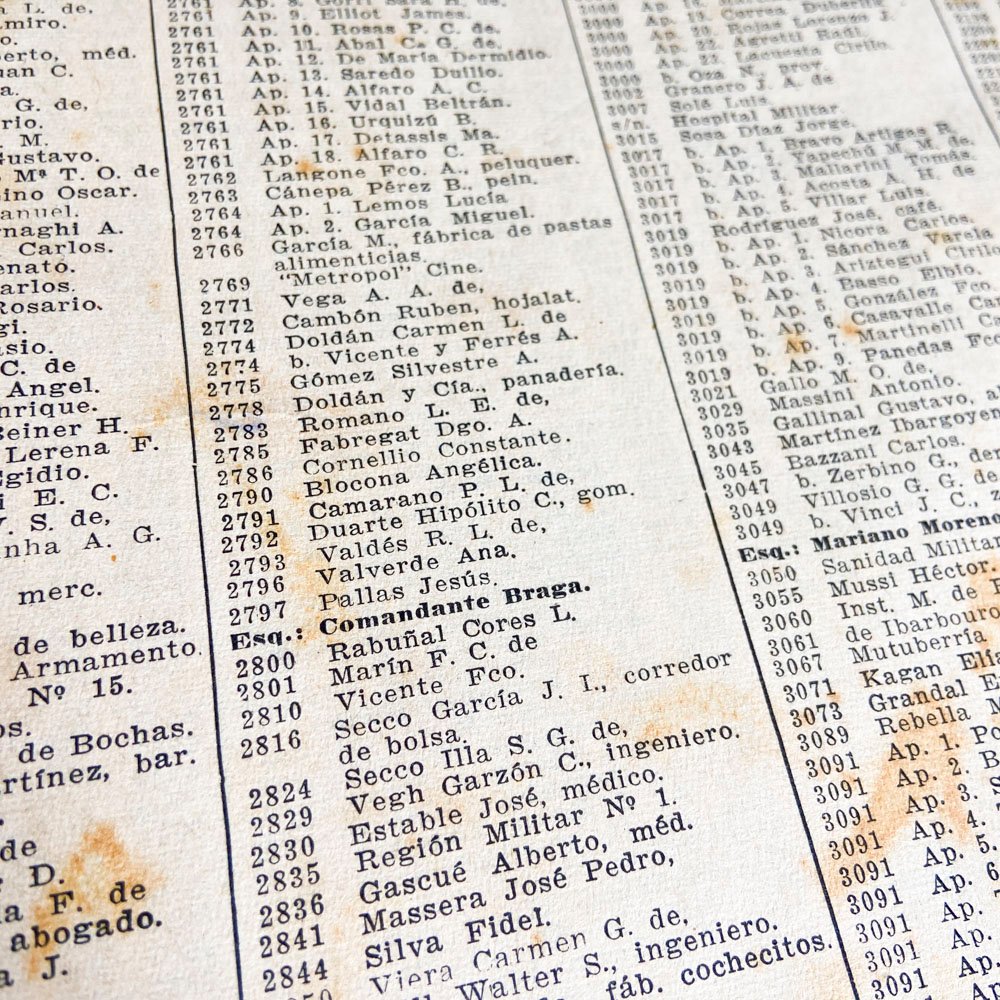 L. de,
miro.
o.
berto, méd.
uan C.
a.
G. de,
rio.
M.
Gustavo.
Mª T. O. de
ino Oscar.
anuel.
rnaghi A.
Carlos.
enato.
arlos.
Rosario.
gi.
asio.
C. de
Angel.
nrique.
Beiner H.
Lerena F.
Egidio.
i E. C.
V. S. de,
inha A. G.
merc.
de belleza.
Armamento.
Nº 15.
os.
de Bochas.
artínez, bar.
de
D.
la F. de
abogado.
a J.
2761 Ap. 9. Elliot James.
2761 Ap. 10. Rosas P. C. de,
2761 Ap. 11. Abal C. G. de,
2761 Ap. 12. De María Dermidio.
2761 Ap. 13. Saredo Duilio.
2761 Ap. 14. Alfaro A. C.
2761 Ap. 15. Vidal Beltrán.
2761 Ap. 16. Urquizú B.
2761 Ap. 17. Detassis Ma.
2761 Ap. 18. Alfaro C. R.
2762 Langone Fco. A., peluquer.
2763 Cánepa Pérez B., pein.
2764 Ap. 1. Lemos Lucía
2764 Ap. 2. García Miguel.
2766 García M., fábrica de pastas
alimenticias.
2769 "Metropol" Cine.
2771 Vega A. A. de,
2772 Cambón Ruben, hojalat.
2774 Doldán Carmen L. de
2774 b. Vicente y Ferrés A.
2775 Gómez Silvestre A.
2778 Doldán y Cía., panadería.
2783 Romano L. E. de,
2785 Fabregat Dgo. A.
2786 Cornellio Constante.
2790 Blocona Angélica.
2791 Camarano P. L. de,
2792 Duarte Hipólito C., gom.
2793 Valdés R. L. de,
2796 Valverde Ana.
2797 Pallas Jesús.
Esq.: Comandante Braga.
2800 Rabuñal Cores L.
2801 Marín F. C. de
2810 Vicente Fco.
2816 Secco García J. I., corredor
de bolsa.
2824 Secco Illa S. G. de,
2829 Vegh Garzón C., ingeniero.
2830 Estable José, médico.
2835 Región Militar Nº 1.
2836 Gascué Alberto, méd.
2841 Massera José Pedro,
2844 Silva Fidel.
Viera Carmen G. de,
Walter S., ingeniero.
fáb. cochecitos.
3000 Ap. 20. Rojas Lorenzo J.
3000 Ap. 22. Agretti Raúl.
3000 Ap. 23. Lacuesta Cirilo.
3000 b. Oza N., prov.
3002 Granero J. A. de
3007 Solé Luis.
s/n. Hospital Militar.
3015 Sosa Díaz Jorge.
3017 b. Ap. 1. Bravo Artigas R.
3017 b. Ap. 2. Yapechú M. M. de,
3017 b. Ap. 3. Mallarini Tomás.
3017 b. Ap. 4. Acosta A. H. de
3017 b. Ap. 5. Villar Luis.
3019 Rodríguez José, café.
3019 b. Ap. 1. Nicora Carlos.
3019 b. Ap. 2. Sánchez Varela
3019 b. Ap. 3. Ariztegui Cirilo
3019 b. Ap. 4. Basso Elbio.
3019 b. Ap. 5. González Fco.
3019 b. Ap. 6. Casavalle Ca
3019 b. Ap. 7. Martinelli Ca
3019 b. Ap. 9. Panedas Fco
3021 Gallo M. O. de,
3029 Massini Antonio.
3035 Gallinal Gustavo, a
3043 Martínez Ibargoyen
3045 Bazzani Carlos.
3047 b. Zerbino G., den
3049 Villosio G. G. de
3049 b. Vinci J. C., z
Esq.: Mariano Moreno
3050 Sanidad Militar
3055 Mussi Héctor.
3060 Inst. M. de
3061 de Ibarbour
3067 Mutuberría
3071 Kagan Elía
3073 Grandal E
3089 Rebella M
3091 Ap. 1. Po
3091 Ap. 2. B
3091 Ap. 3. S
3091 Ap. 4.
3091 Ap. 5.
3091 Ap. 6
3091 Ap.
3091 Ap.
3091 Ap.